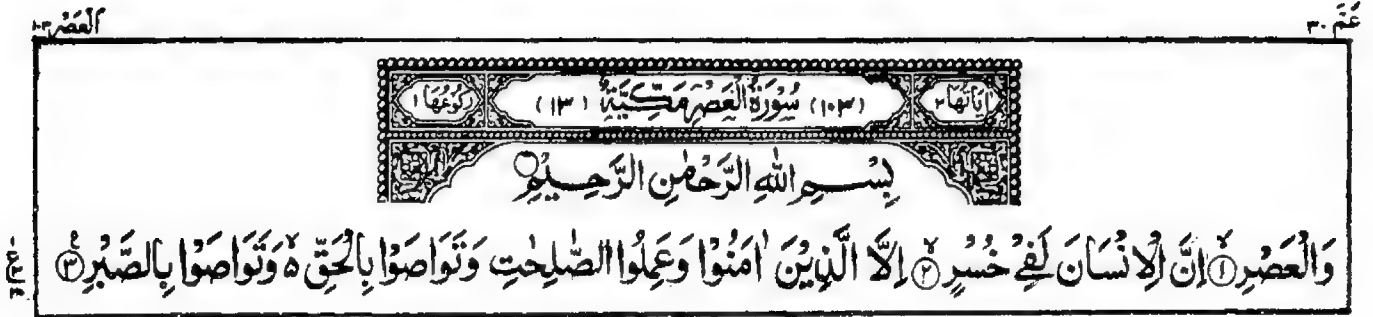 عَمَّ ٣٠
اَلْعَصْر ١٠٣
اٰيَاتُهَا ٣ (١٠٣) سُوْرَةُ الْعَصْرِ مَكِّيَّةٌ (١٣) رُكُوْعُهَا ١
بِسْمِ اللهِ الرَّحْمٰنِ الرَّحِيْمِ
وَالْعَصْرِ ۙ﴿١﴾ اِنَّ الْاِنْسَانَ لَفِيْ خُسْرٍ ۙ﴿٢﴾ اِلَّا الَّذِيْنَ اٰمَنُوْا وَعَمِلُوا الصّٰلِحٰتِ وَتَوَاصَوْا بِالْحَقِّ ۙ۬ وَتَوَاصَوْا بِالصَّبْرِ ﴿٣﴾